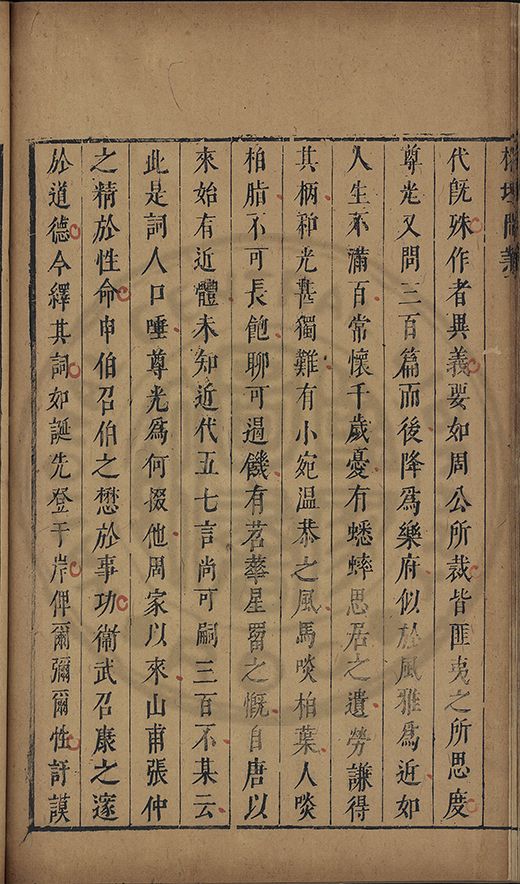 榕壇問業
代旣殊作者異義要如周公所裁皆匪夷之所思度
尊光又問三百篇而後降爲樂府似於風雅爲近如
人生不滿百常懷千歲憂有蟋蟀思居之遺勞謙得
其柄和光甚獨難有小宛温恭之風馬啖柏葉人啖
柏脂不可長飽聊可過饑有苕華星罶之慨自唐以
來始有近體未知近代五七言尚可嗣三百不某云
此是詞人口唾尊光爲何掇他周家以來山甫張仲
之精於性命申伯召伯之懋於事功衞武召康之邃
於道德今繹其詞如誕先登于岸俾爾彌爾性訏謨